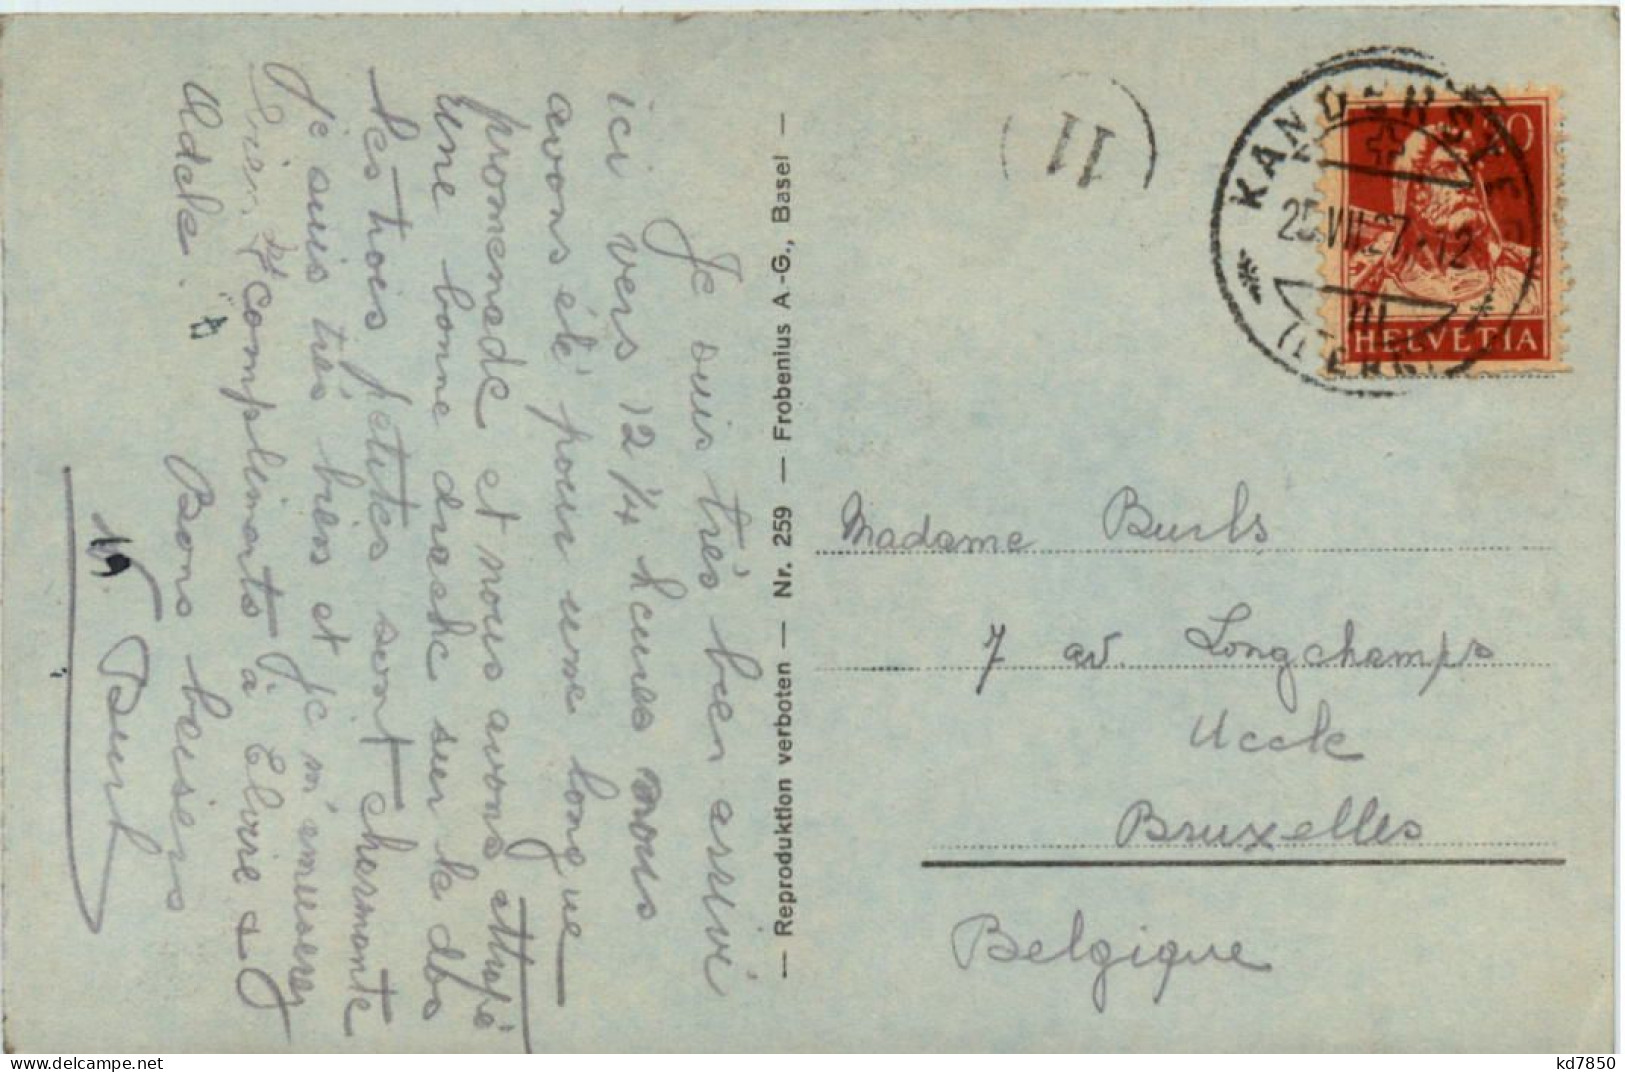 Je suis très bien arrivé
ici vers 12 1/4 heures nous
avons été pour une longue
promenade et nous avons attrapé
une bonne drache sur le dos
Les trois petites sont charmante
je suis très bien et je m'amuserai
bien # compliments à Elvire &
Adèle. Bons baisers
Burb
— Reproduktion verboten — Nr. 259 — Frobenius A.-G., Basel —
11
KANDERSTEG
25.VIII.27.-12
III
(BERN)
10
HELVETIA
Madame Burbs
7 av. Longchamps
Uccle
Bruxelles
Belgique
kd7850